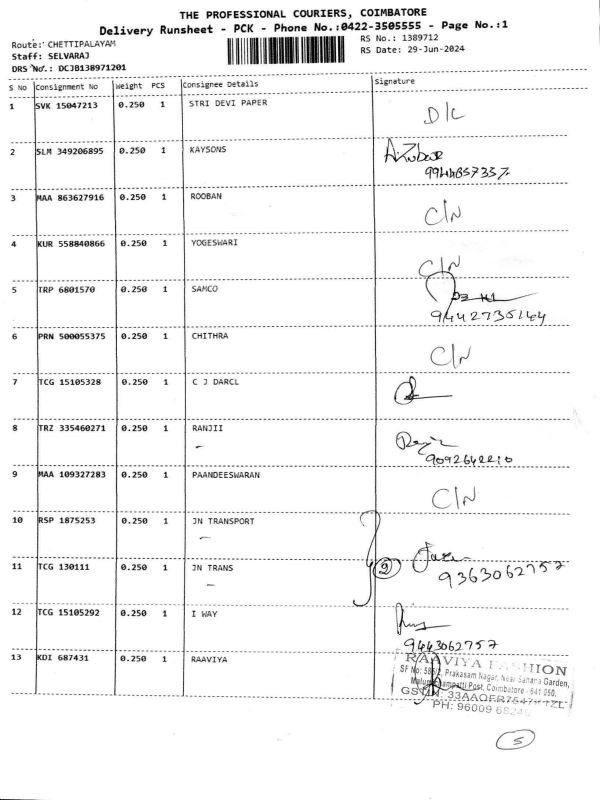 THE PROFESSIONAL COURIERS, COIMBATORE
Delivery Runsheet - PCK - Phone No.:0422-3505555 - Page No.:1
Route: CHETTIPALAYAM
RS No.: 1389712
Staff: SELVARAJ
RS Date: 29-Jun-2024
DRS No.: DCJB138971201
S No Consignment No Weight PCS Consignee Details Signature
1 SVK 15047213 0.250 1 STRI DEVI PAPER D/L
2 SLM 349206895 0.250 1 KAYSONS
3 MAA 863627916 0.250 1 ROOBAN C/N
4 KUR 558840866 0.250 1 YOGESWARI C/N
5 TRP 6801570 0.250 1 SAMCO
9442735164
6 PRN 500055375 0.250 1 CHITHRA C/N
7 TCG 15105328 0.250 1 C J DARCL
8 TRZ 335460271 0.250 1 RANJII
9092642210
9 MAA 109327283 0.250 1 PAANDEESWARAN C/N
10 RSP 1875253 0.250 1 JN TRANSPORT
11 TCG 130111 0.250 1 JN TRANS 2
9363062757
12 TCG 15105292 0.250 1 I WAY
9443062757
13 KDI 687431 0.250 1 RAAVIYA
RAAVIYA FASHION
Prakasam Nagar, Near Sahana Garden,
Post, Coimbatore - 641 050.
PH: 96009
5